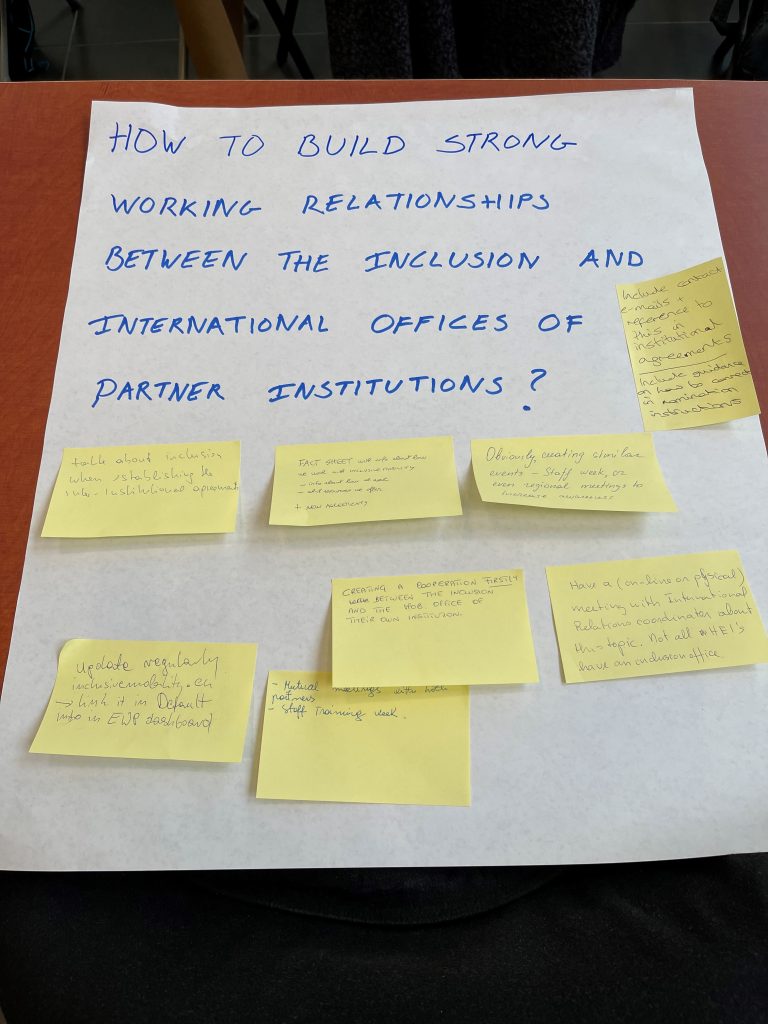 HOW TO BUILD STRONG
WORKING RELATIONSHIPS
BETWEEN THE INCLUSION AND
INTERNATIONAL OFFICES OF
PARTNER INSTITUTIONS?
Include contact
e-mails +
reference to
this in
institutional
agreements
Include guidance
on how to connect
in nomination
instructions
talk about inclusion
when establishing the
inter-institutional agreement
FACT SHEET with info about how
we work with inclusive mobility
- info about how we work
- what services we offer
+ HOW ACCESSIBILITY
Obviously, creating similar
events - Staff week, or
even regional meetings to
increase awareness
CREATING A COOPERATION FIRSTLY
BETWEEN THE INCLUSION
AND THE MOB. OFFICE OF
THEIR OWN INSTITUTION.
Have a (on-line or physical)
meeting with International
Relations coordinator about
this topic. Not all HEI's
have an inclusion office.
update regularly
inclusivemobility.eu
→ link it in Default
info in EWP dashboard
- Mutual meetings with both
partners
- Staff Training week.